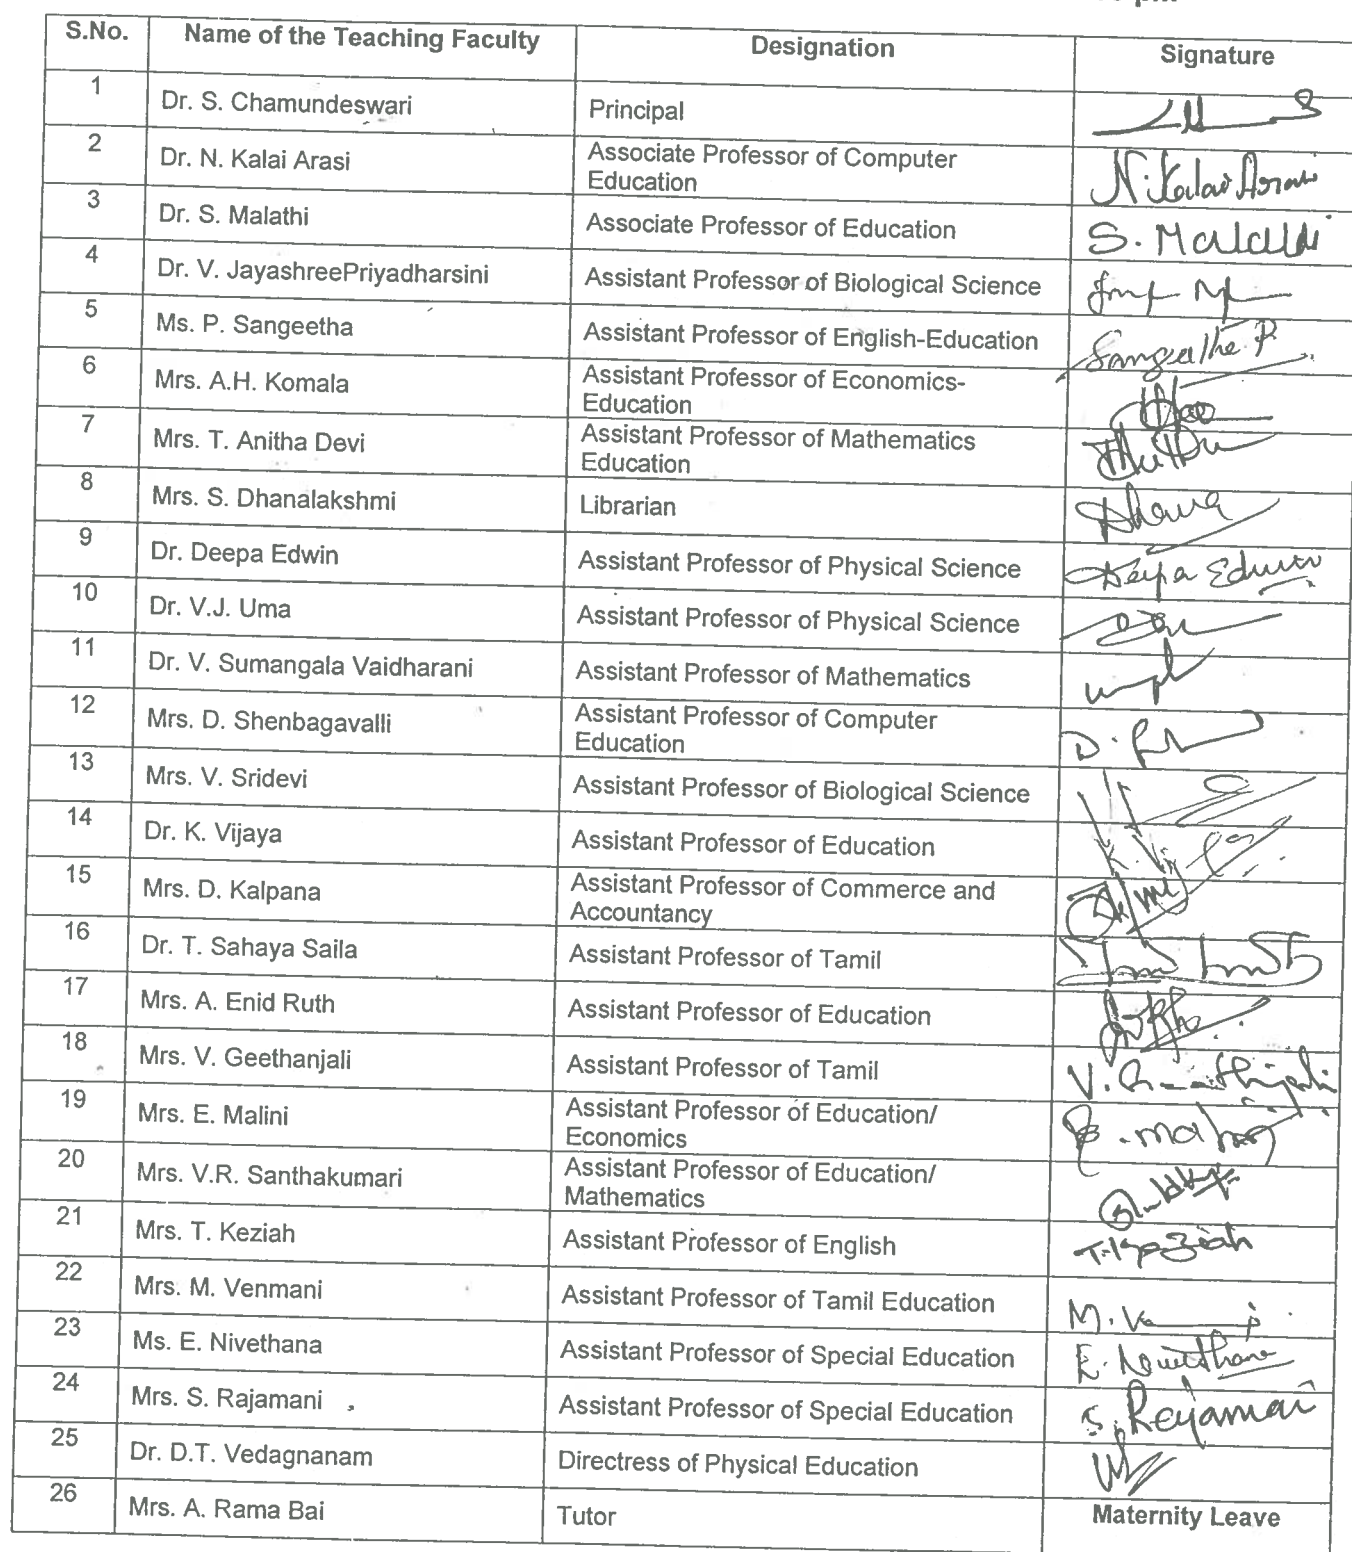 S.No. Name of the Teaching Faculty Designation Signature
1 Dr. S. Chamundeswari Principal
2 Dr. N. Kalai Arasi Associate Professor of Computer
Education N. Kalai Arasi
3 Dr. S. Malathi Associate Professor of Education S. Malathi
4 Dr. V. JayashreePriyadharsini Assistant Professor of Biological Science
5 Ms. P. Sangeetha Assistant Professor of English-Education Sangeetha P
6 Mrs. A.H. Komala Assistant Professor of Economics-
Education
7 Mrs. T. Anitha Devi Assistant Professor of Mathematics
Education
8 Mrs. S. Dhanalakshmi Librarian Dhana
9 Dr. Deepa Edwin Assistant Professor of Physical Science Deepa Edwin
10 Dr. V.J. Uma Assistant Professor of Physical Science
11 Dr. V. Sumangala Vaidharani Assistant Professor of Mathematics
12 Mrs. D. Shenbagavalli Assistant Professor of Computer
Education D.
13 Mrs. V. Sridevi Assistant Professor of Biological Science
14 Dr. K. Vijaya Assistant Professor of Education
15 Mrs. D. Kalpana Assistant Professor of Commerce and
Accountancy
16 Dr. T. Sahaya Saila Assistant Professor of Tamil
17 Mrs. A. Enid Ruth Assistant Professor of Education
18 Mrs. V. Geethanjali Assistant Professor of Tamil V. Geethanjali
19 Mrs. E. Malini Assistant Professor of Education/
Economics E. Malini
20 Mrs. V.R. Santhakumari Assistant Professor of Education/
Mathematics
21 Mrs. T. Keziah Assistant Professor of English T. Keziah
22 Mrs. M. Venmani Assistant Professor of Tamil Education M.
23 Ms. E. Nivethana Assistant Professor of Special Education E. Nivethana
24 Mrs. S. Rajamani Assistant Professor of Special Education S. Rajamani
25 Dr. D.T. Vedagnanam Directress of Physical Education
26 Mrs. A. Rama Bai Tutor Maternity Leave